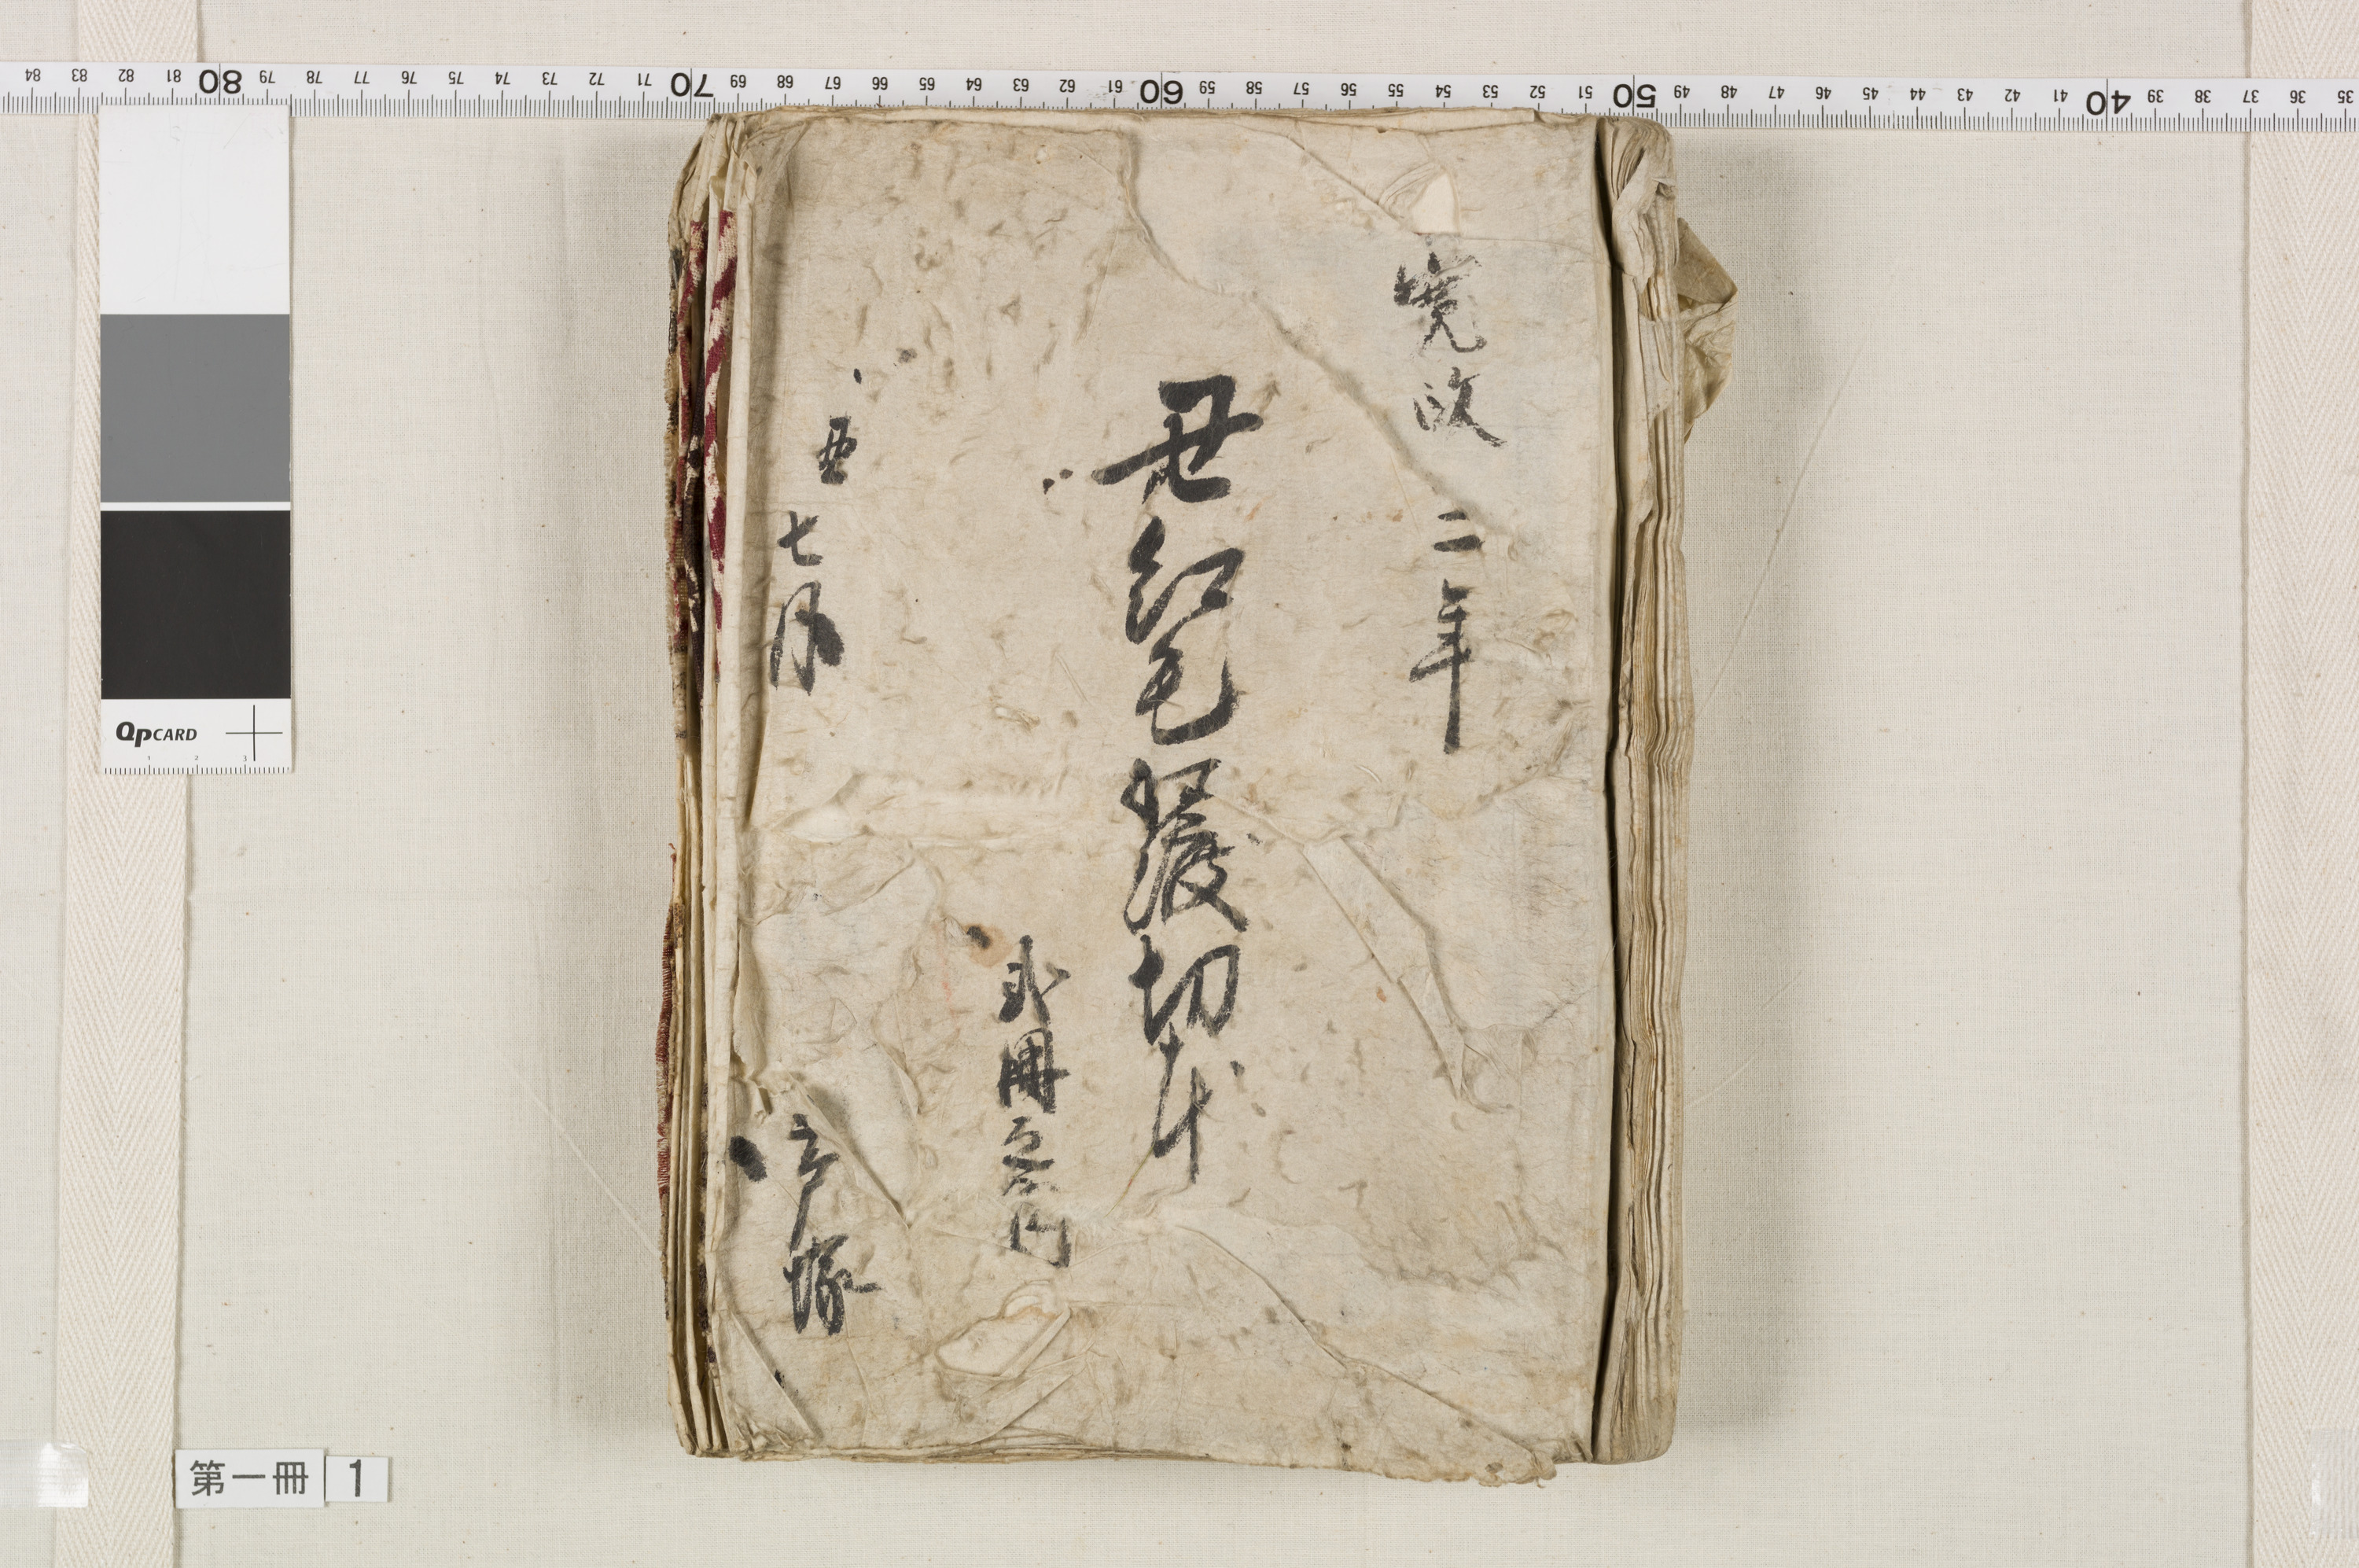 寛政 二年
丑紅毛船渡切本
弐冊之内
七月
戸塚
84 83 82 81 80 79 78 77 76 75 74 73 72 71 70 69 68 67 66 65 64 63 62 61 60 59 58 57 56 55 54 53 52 51 50 49 48 47 46 45 44 43 42 41 40 39 38 37 36 35
QPCARD
1 2 3
第一冊 1